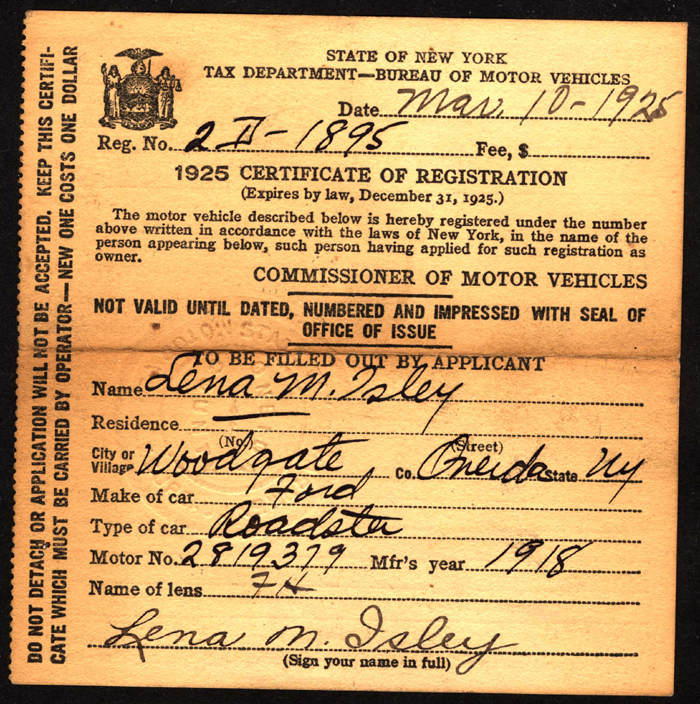 STATE OF NEW YORK
TAX DEPARTMENT—BUREAU OF MOTOR VEHICLES
Date Mar. 10-1925
Reg. No. 2D-1895 Fee, $
1925 CERTIFICATE OF REGISTRATION
(Expires by law, December 31, 1925.)
The motor vehicle described below is hereby registered under the number
above written in accordance with the laws of New York, in the name of the
person appearing below, such person having applied for such registration as
owner.
COMMISSIONER OF MOTOR VEHICLES
NOT VALID UNTIL DATED, NUMBERED AND IMPRESSED WITH SEAL OF
OFFICE OF ISSUE
TO BE FILLED OUT BY APPLICANT
Name Lena M. Isley
Residence
(No.) (Street)
City or Village Woodgate Co. Oneida State Ny
Make of car Ford
Type of car Roadster
Motor No. 2819379 Mfr's year 1918
Name of lens FH
Lena M. Isley
(Sign your name in full)
DO NOT DETACH OR APPLICATION WILL NOT BE ACCEPTED. KEEP THIS CERTIFI-
CATE WHICH MUST BE CARRIED BY OPERATOR—NEW ONE COSTS ONE DOLLAR